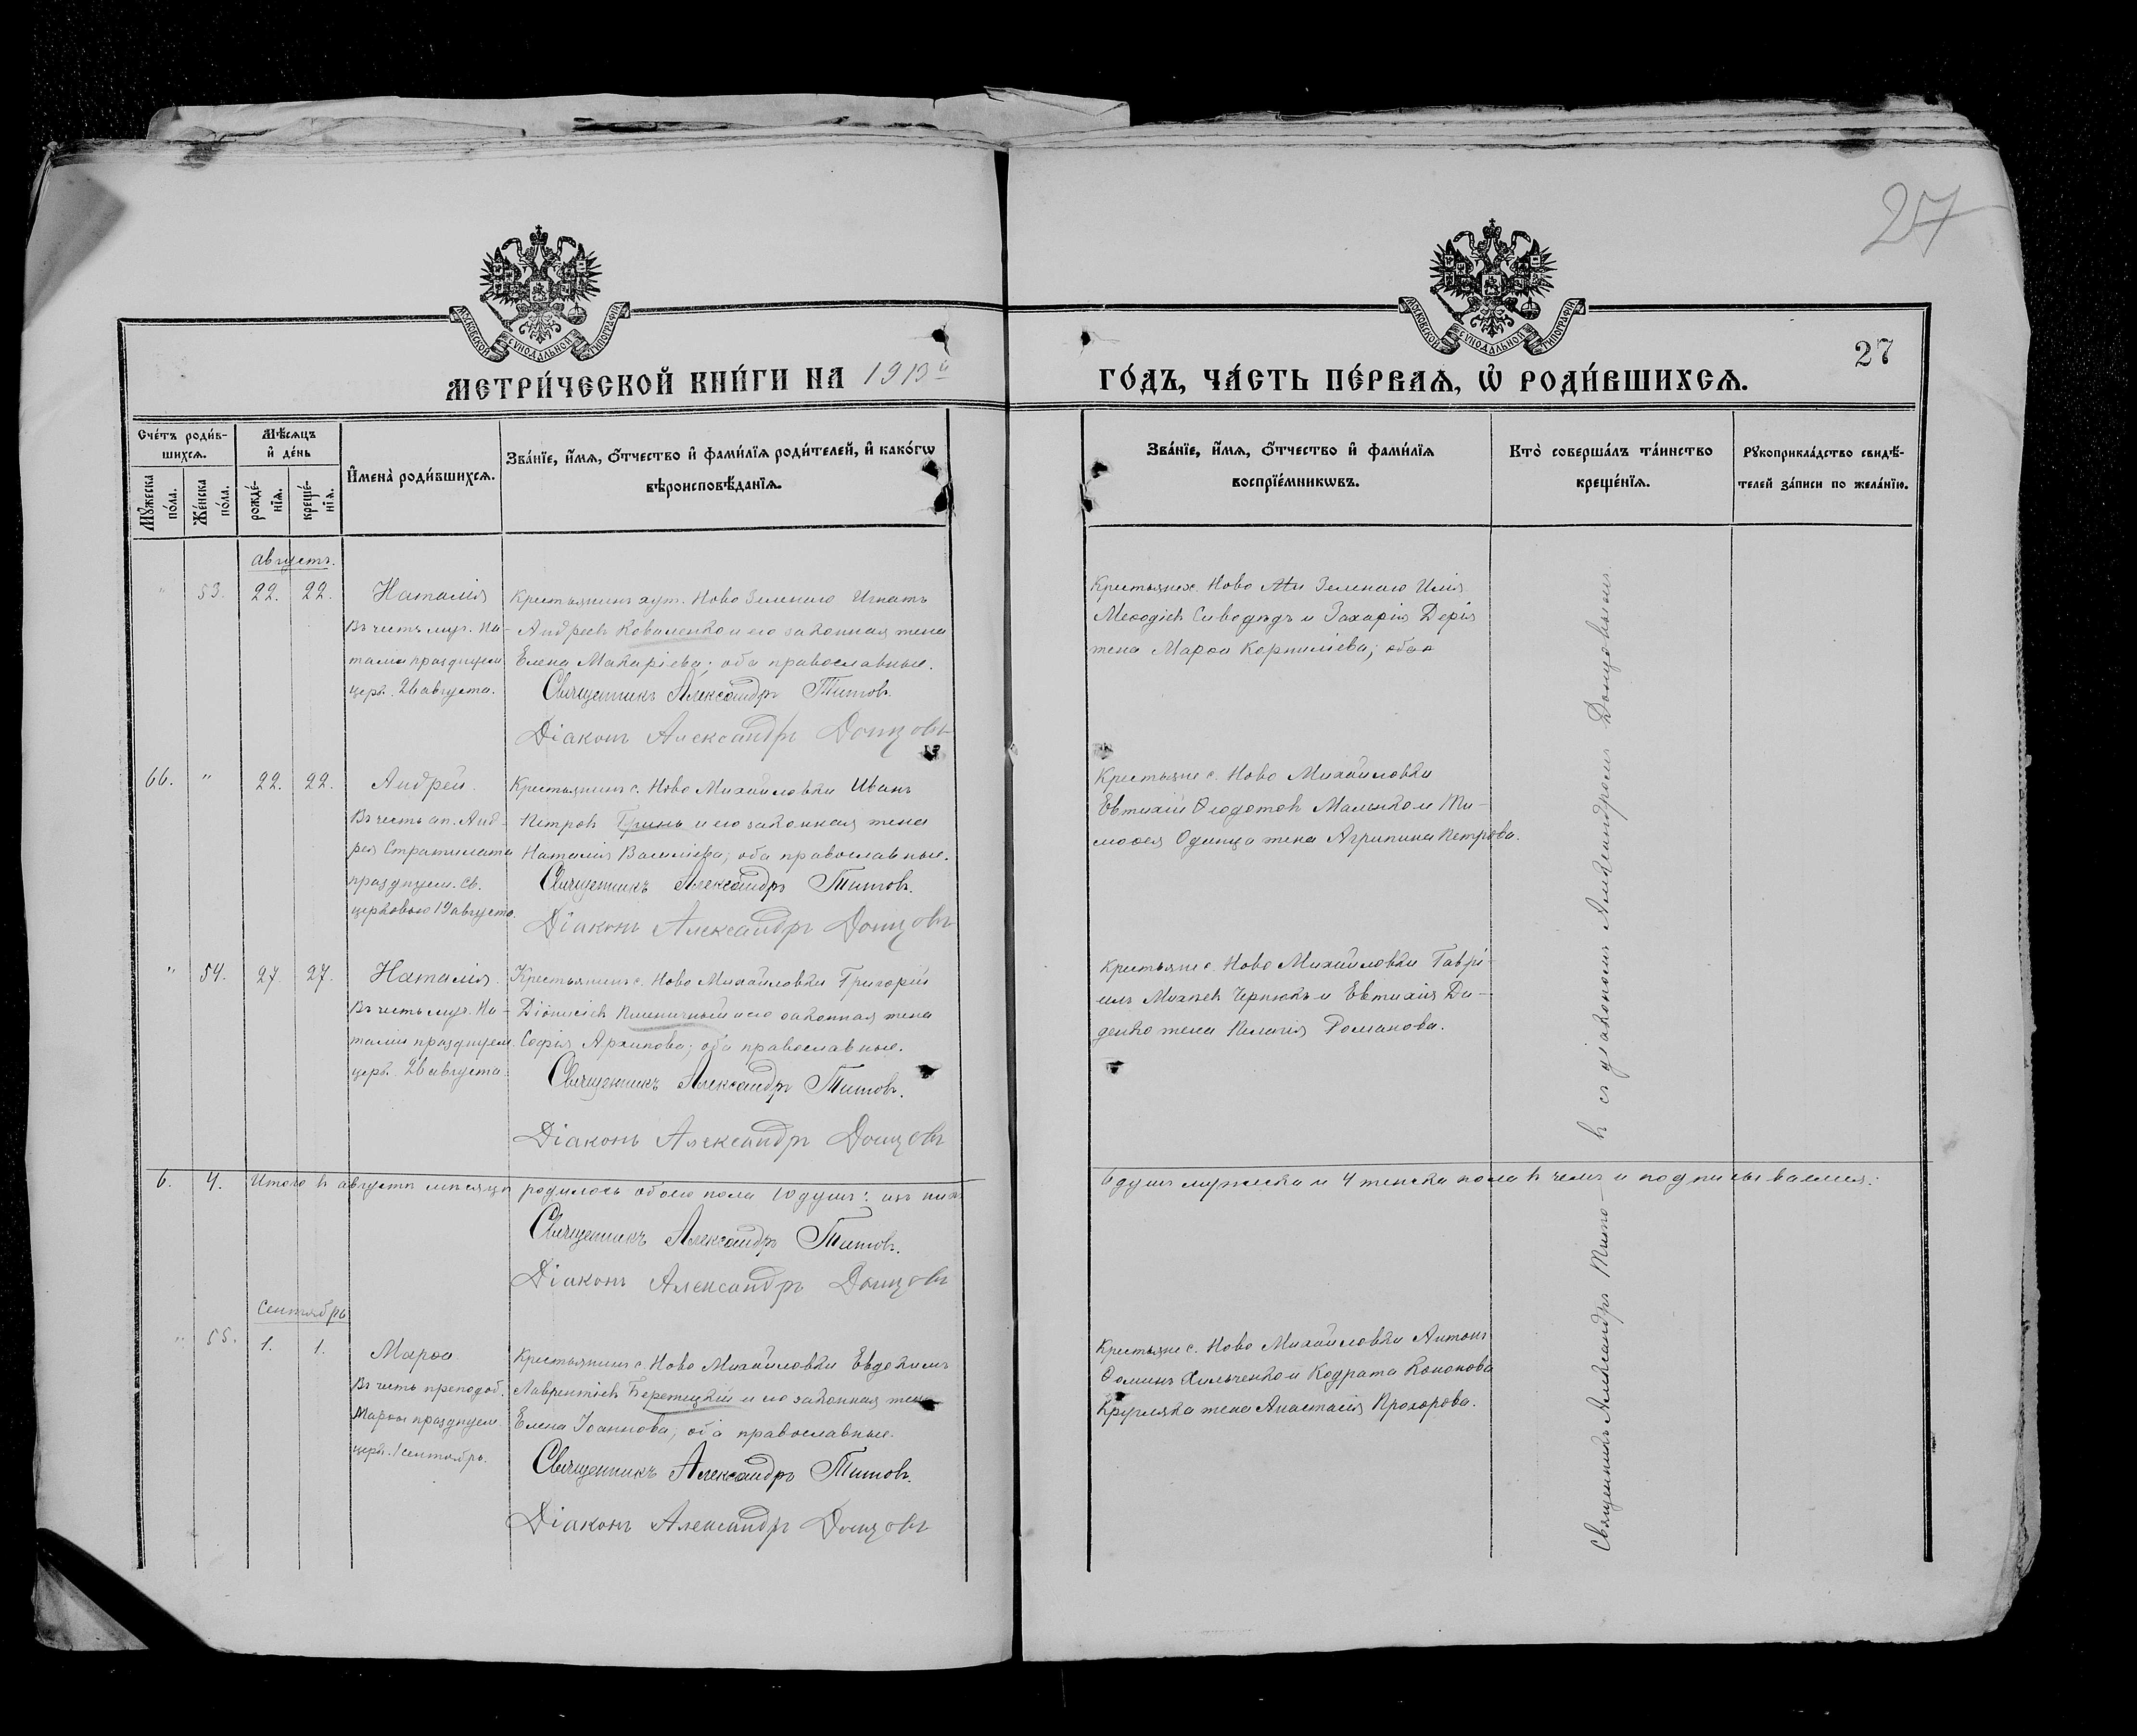 27
МОСКОВСКОЙ СѴНОДАЛЬНОЙ ТИПОГРАФІИ
МОСКОВСКОЙ СѴНОДАЛЬНОЙ ТИПОГРАФІИ
27
МЕТРИ́ЧЕСКОЙ КНИ́ГИ НА 1913й ГО́ДЪ, ЧА́СТЬ ПЕ́РВАѦ, Ѽ РОДИ́ВШИХСѦ.
Сче́тъ роди́в-
шихсѧ.
Мѣ́сѧцъ
и҆ де́нь
Мꙋ́жеска
по́ла.
Же́нска
по́ла.
рожде́-
нїѧ.
креще́-
нїѧ.
И҆мена̀ роди́вшихсѧ.
Зва́нїе, и҆́мѧ, ѻ҆́тчество и҆ фами́лїѧ роди́телей, и҆ како́гѡ
вѣроисповѣ́данїѧ.
Зва́нїе, и҆́мѧ, ѻ҆́тчество и҆ фами́лїѧ
воспрїе́мникѡвъ.
Кто̀ соверша́лъ та́инство
креще́нїѧ.
Рꙋкоприкла́дство свидѣ́-
телей за́писи по жела́нїю.
Августъ.
" 53. 22. 22. Наталія
Въ честь муч. На-
таліи празднуем.
церк. 26 августа.
Крестьянинъ хут. Ново Зеленаго Игнатъ
Андреевъ Коваленко и его законная жена
Елена Макаріева; оба православные.
Священникъ Александръ Титовъ.
Діаконъ Александръ Донцовъ
Крестьяне х. Ново Зеленаго Илія
Меѳодіевъ Сиводѣдъ и Захарія Дерія
жена Марѳа Корниліева;
66. " 22. 22. Андрей.
Въ честь ап. Анд-
рея Стратилата
празднуем. св.
церковью 19 августа.
Крестьянинъ с. Ново Михайловки Иванъ
Петровъ Гринь и его законная жена
Наталія Василіева; оба православные.
Священникъ Александръ Титовъ.
Діаконъ Александръ Донцовъ
Крестьяне с. Ново Михайловки
Евтихій Ѳеодотовъ Малько и Ти-
моѳея Одинца жена Агрипина Петрова.
" 54. 27. 27. Наталія.
Въ честь муч. На-
таліи празднуем.
церк. 26 августа.
Крестьянинъ с. Ново Михайловки Григорій
Діонисіевъ Пшеничный и его законная жена
Софія Архипова; оба православные.
Священникъ Александръ Титовъ.
Діаконъ Александръ Донцовъ
Крестьяне с. Ново Михайловки Гаврі-
илъ Михѣевъ Чернюкъ и Евтихія Ди-
денко жена Пелагія Романова.
6. 4. Итого въ августѣ мѣсяцѣ родилось обоего пола 10 душъ: изъ нихъ 6 душъ мужеска и 4 женска пола въ чемъ и подписываемся:
Священникъ Александръ Титовъ.
Діаконъ Александръ Донцовъ
Сентябрь
" 55. 1. 1. Марѳа
Въ честь преподоб.
Марѳы празднуем.
церк. 1 сентябрь.
Крестьянинъ с. Ново Михайловки Евдокимъ
Лаврентіевъ Беретецкій и его законная жена
Елена Іоаннова; оба православные.
Священникъ Александръ Титовъ.
Діаконъ Александръ Донцовъ
Крестьяне с. Ново Михайловки Антонъ
Ѳоминъ Хильченко и Кодрата Кононова
Кругляка жена Анастасія Прохорова.
Священникъ Александръ Тито-въ съ діакономъ Александромъ Донцовымъ.